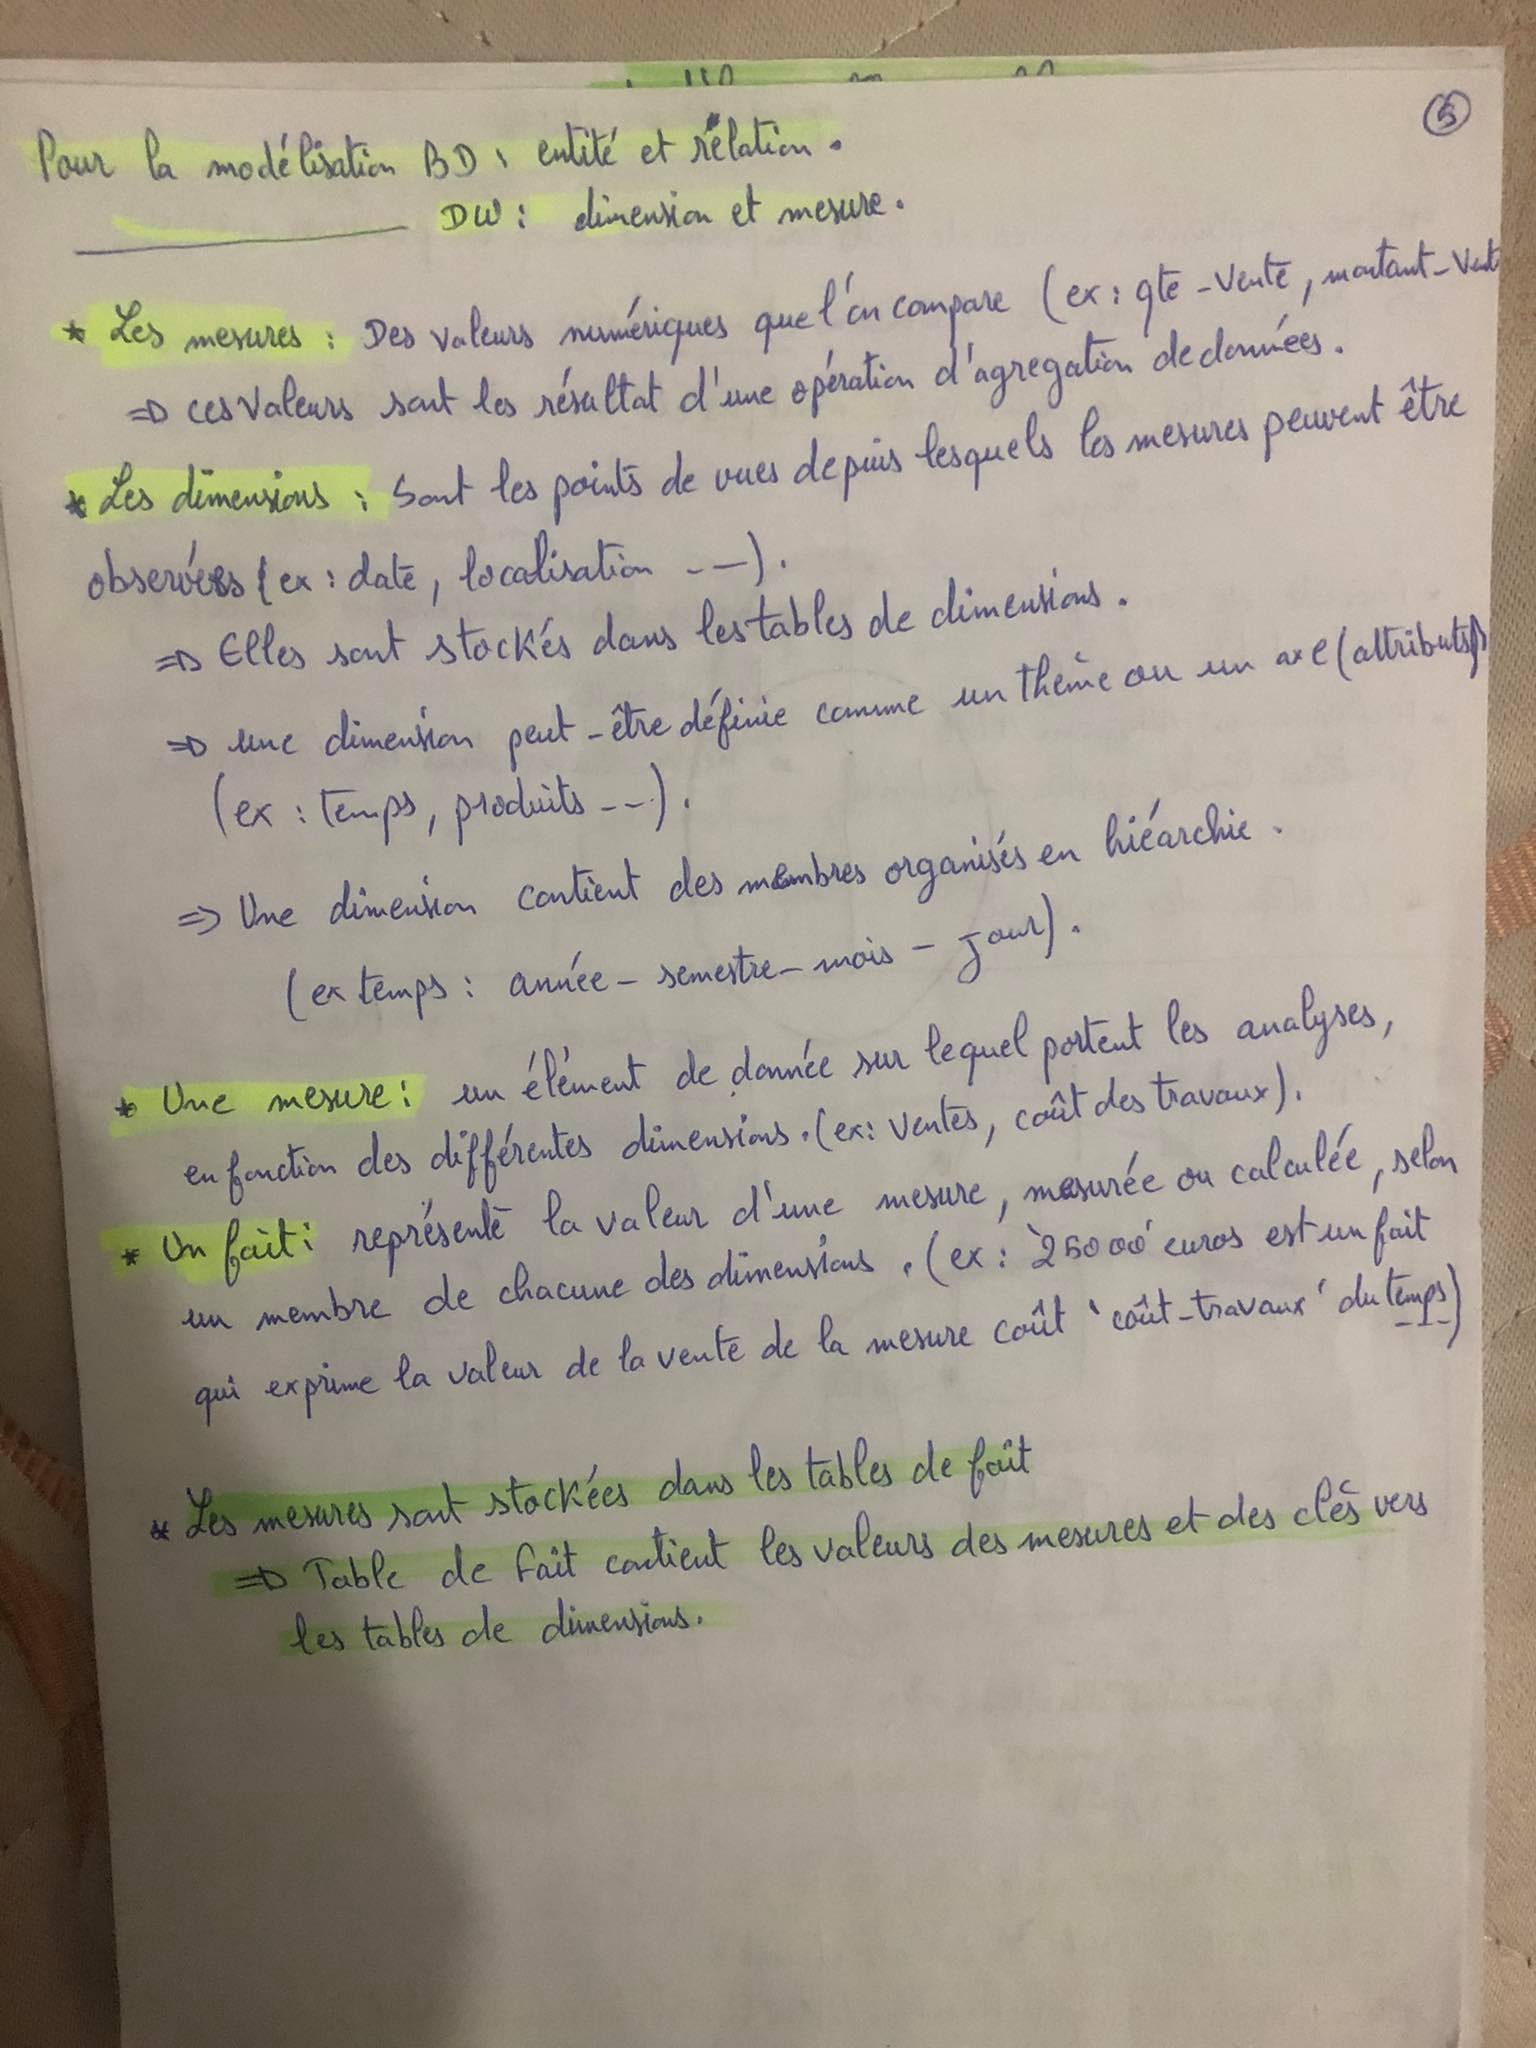 5
Pour la modélisation BD : entité et rélation.
DW : dimension et mesure.
* Les mesures : Des valeurs numériques que l'on compare (ex : qte-vente, montant-vent
⇒ ces valeurs sont les résultat d'une opération d'agregation de données.
* Les dimensions : Sont les points de vues depuis lesquels les mesures peuvent être
observées (ex : date, localisation ---).
⇒ Elles sont stockés dans les tables de dimensions.
⇒ une dimension peut-être définie comme un thème ou un axe (attributs)
(ex : temps, produits ---).
⇒ Une dimension contient des membres organisés en hiéarchie.
(ex temps : année - semestre - mois - jour).
* Une mesure : un élément de donnée sur lequel portent les analyses,
en fonction des différentes dimensions. (ex: ventes, coût des travaux).
* Un fait : représente la valeur d'une mesure, mesurée ou calculée, selon
un membre de chacune des dimensions. (ex : '25000' euros est un fait
qui exprime la valeur de la vente de la mesure coût 'coût-travaux' du temps)
* Les mesures sont stockées dans les tables de fait
⇒ Table de fait contient les valeurs des mesures et des clés vers
les tables de dimensions.